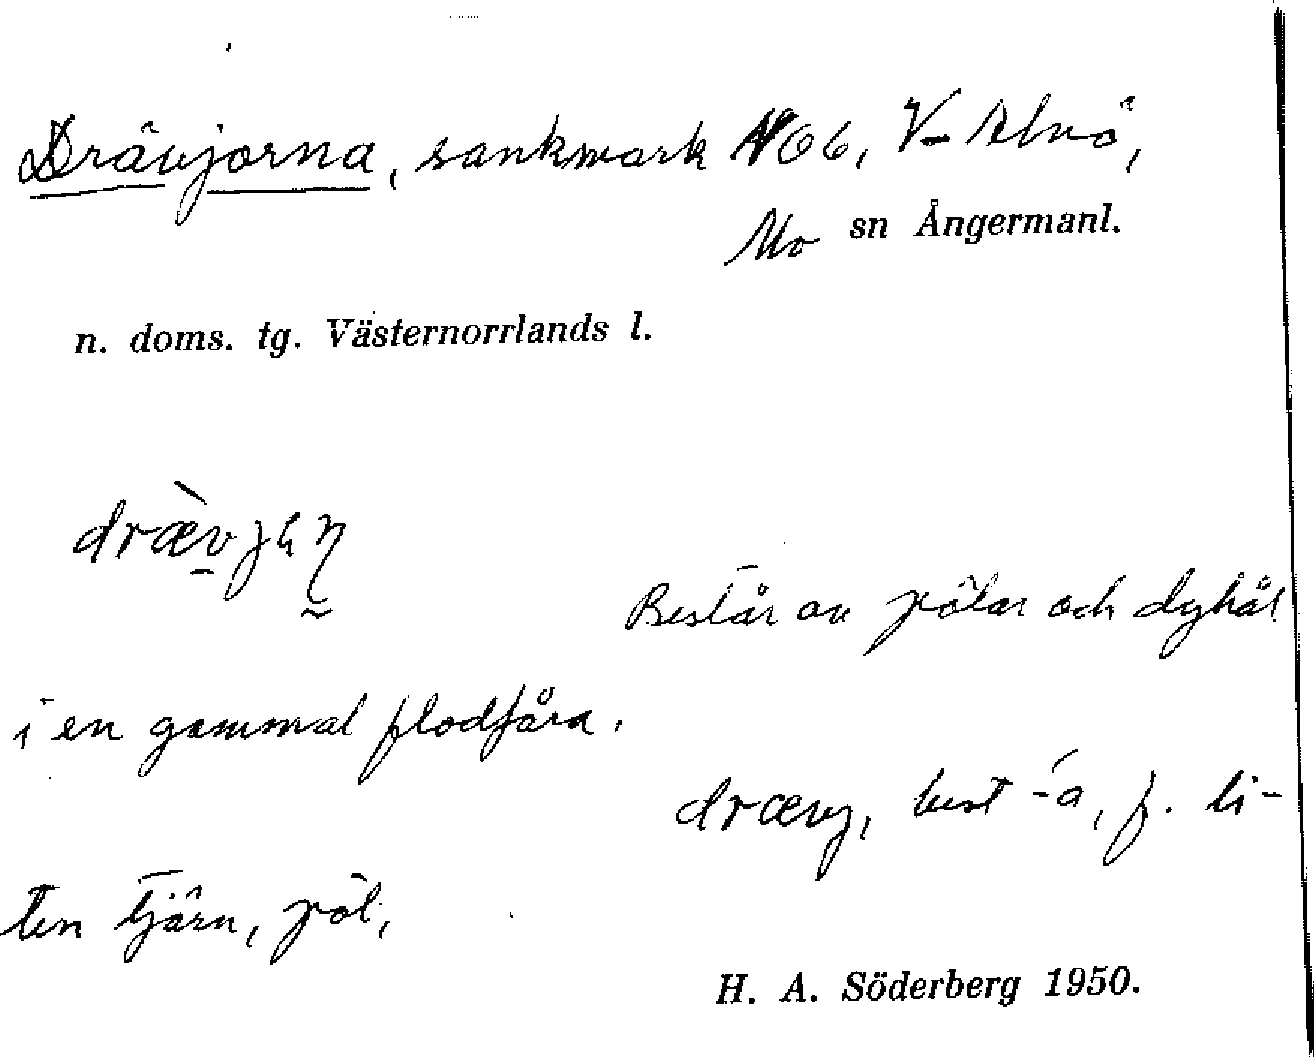 Drävjorna, sankmark NO 6, V- Alnö,
Mo sn Ångermanl.
n. doms. tg. Västernorrlands l.
Består av pölar och dyhål
i en gammal flodfåra.
drævj, best -a, f. li-
ten tjärn, pöl.
H. A. Söderberg 1950.